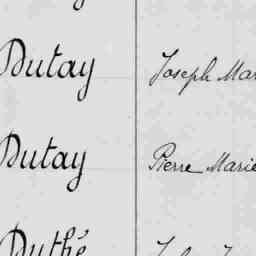 Dutay Joseph Mar
Dutay Pierre Marie
Duthé